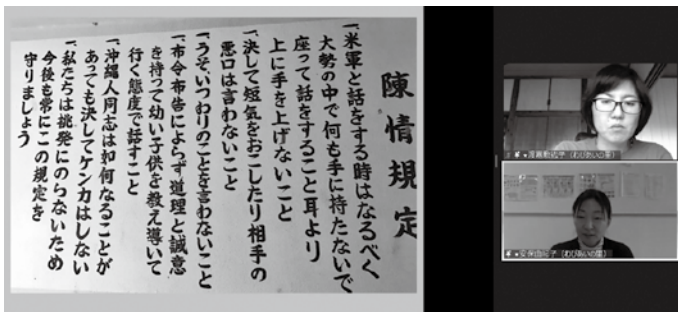 陳情規定
一、米軍と話をする時はなるべく
大勢の中で何も手に持たないで
座って話をすること耳より
上に手を上げないこと
一、決して短気をおこしたり相手の
悪口は言わないこと
一、うそいつわりのことを言わないこと
一、布令布告によらず道理と誠意
を持って幼い子供を教え導いて
行く態度で話すこと
一、沖縄人同志は如何なることが
あっても決してケンカはしない
一、私たちは挑発にのらないため
今後も常にこの規定を
守りましょう
(わびあいの里)
(わびあいの里)